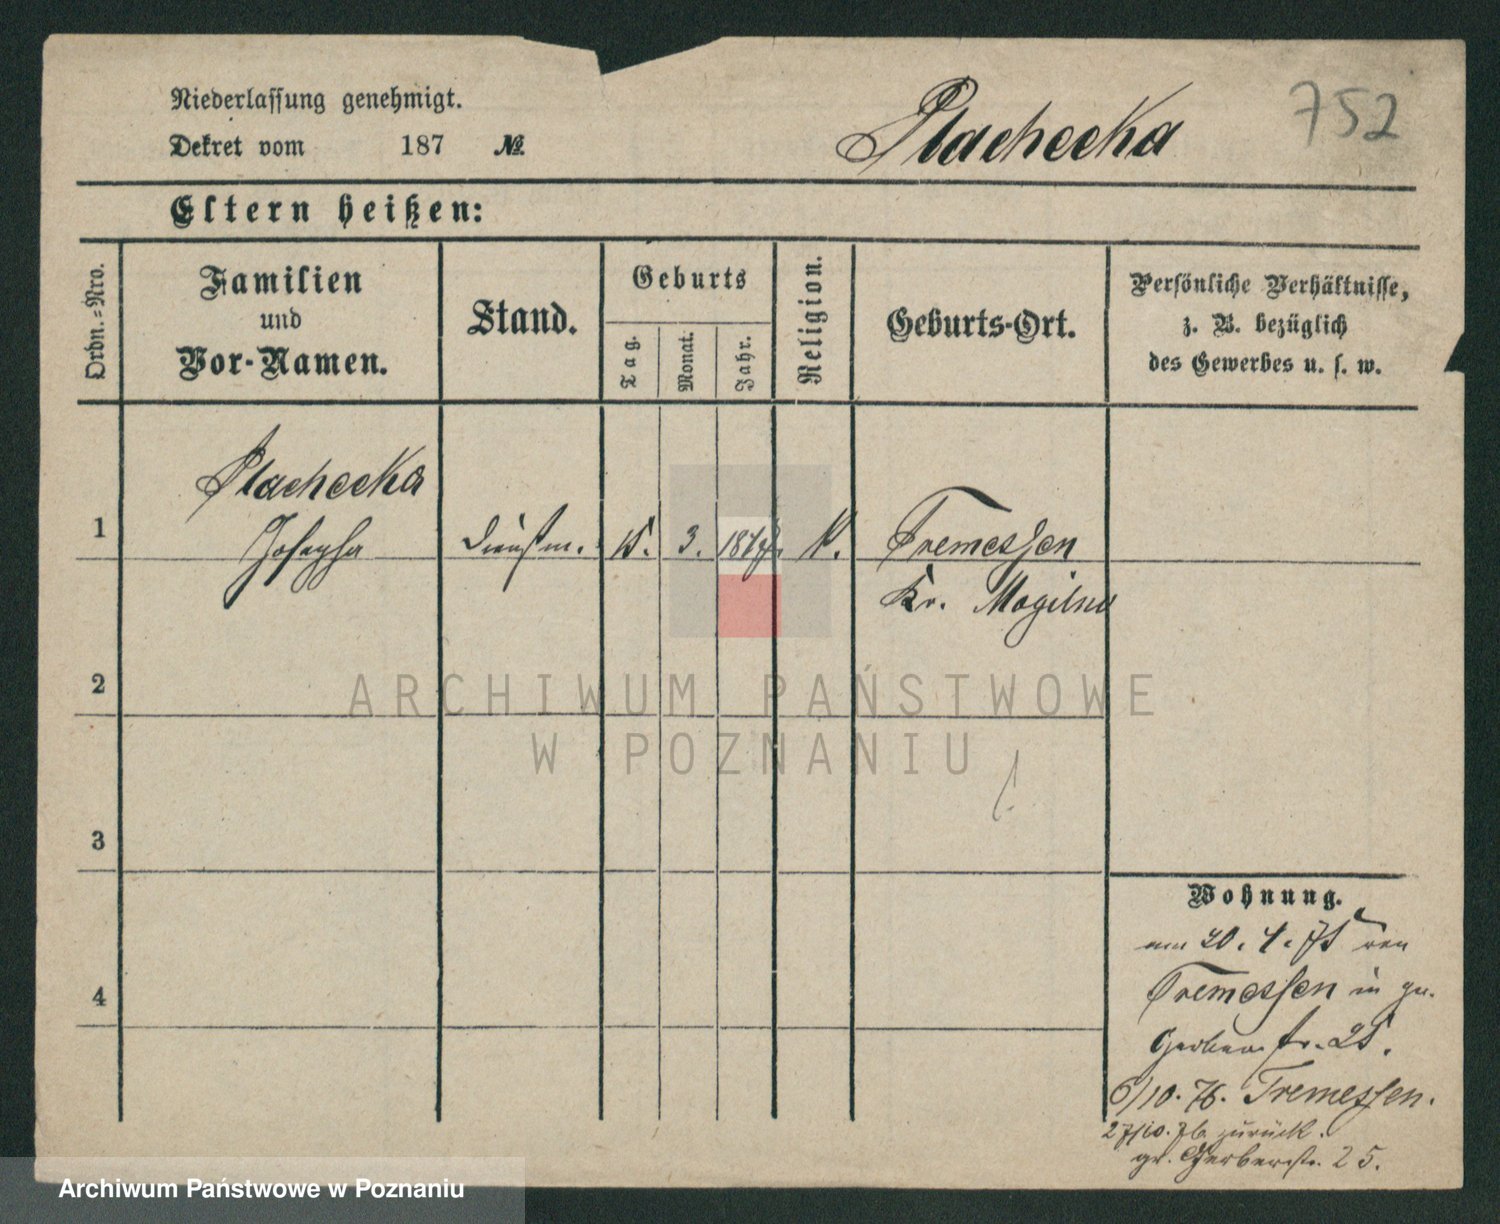 Niederlassung genehmigt.
Dekret vom 187 №
Plachecka
752
Eltern heißen:
Ordn.-Nro.
Familien
und
Vor-Namen.
Stand.
Geburts
Tag.
Monat.
Jahr.
Religion.
Geburts-Ort.
Persönliche Verhältnisse,
z. B. bezüglich
des Gewerbes u. s. w.
1
Plachecka
Josepha
Dienstm.
15.
3.
K.
Tremessen
Kr. Mogilno
2
ARCHIWUM PAŃSTWOWE
W POZNANIU
3
4
Wohnung.
am 20. 4. 75 von
Tremessen in gr.
Gerberstr. 25.
6/10. 76. Tremessen.
27/10. 76. zurück.
gr. Gerberstr. 25.
Archiwum Państwowe w Poznaniu